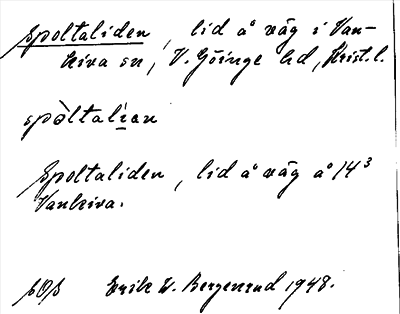 Spoltaliden, lid å väg i Van-
kiva sn, V. Göinge hd, Krist. l.
spòltalian
Spoltaliden, lid å väg å 14³
Vankiva.
Erik W. Bergenrud 1948.